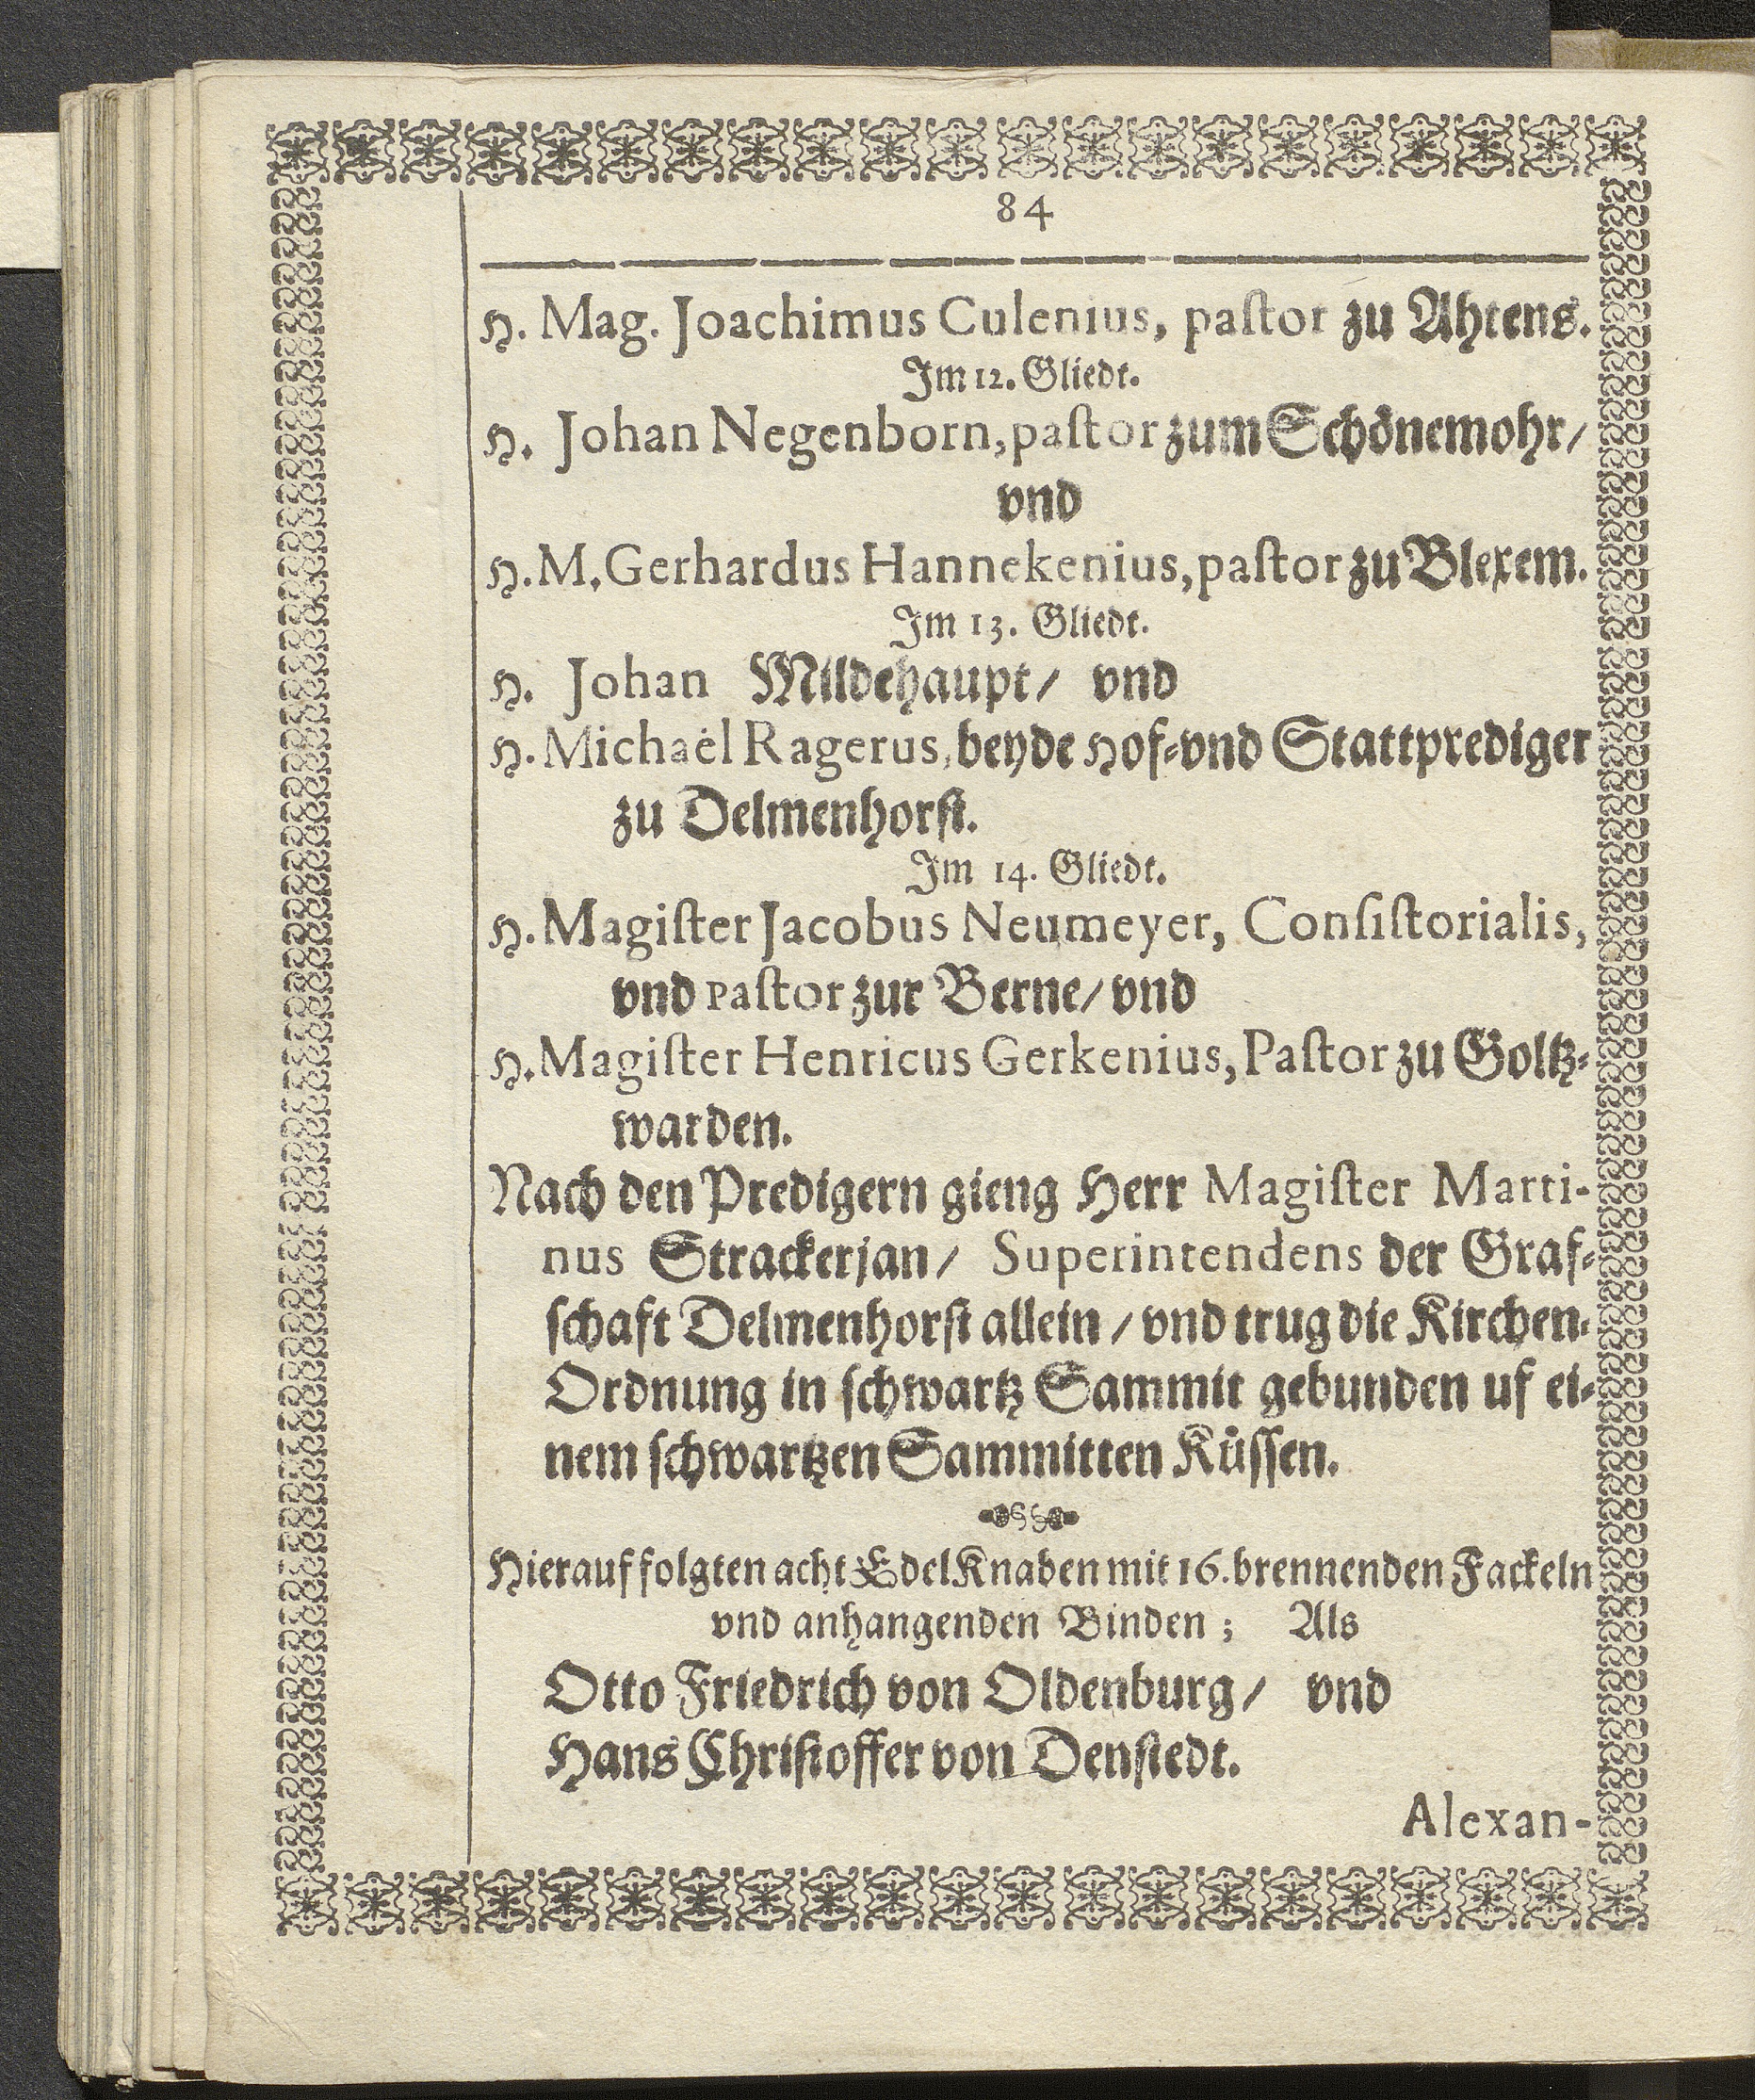 84
H. Mag. Joachimus Culenius, paſtor zu Ahtens.
Im 12. Gliedt.
H. Johan Negenborn, paſtor zum Schönemohr/
vnd
H. M. Gerhardus Hannekenius, paſtor zu Blexem.
Im 13. Gliedt.
H. Johan Mildehaupt/ vnd
H. Michaël Ragerus, beyde Hof-vnd Stattprediger
zu Delmenhorſt.
Im 14. Gliedt.
H. Magiſter Jacobus Neumeyer, Conſiſtorialis,
vnd Paſtor zur Berne/ vnd
H. Magiſter Henricus Gerkenius, Paſtor zu Goltz-
warden.
Nach den Predigern gieng Herr Magiſter Marti-
nus Strackerjan/ Superintendens der Graf-
ſchaft Delmenhorſt allein/ vnd trug die Kirchen-
Ordnung in ſchwartz Sammit gebunden uf ei-
nem ſchwartzen Sammitten Küſſen.
Hierauf folgten acht EdelKnaben mit 16. brennenden Fackeln
vnd anhangenden Binden; Als
Otto Friedrich von Oldenburg/ vnd
Hans Chriſtoffer von Denſtedt.
Alexan-